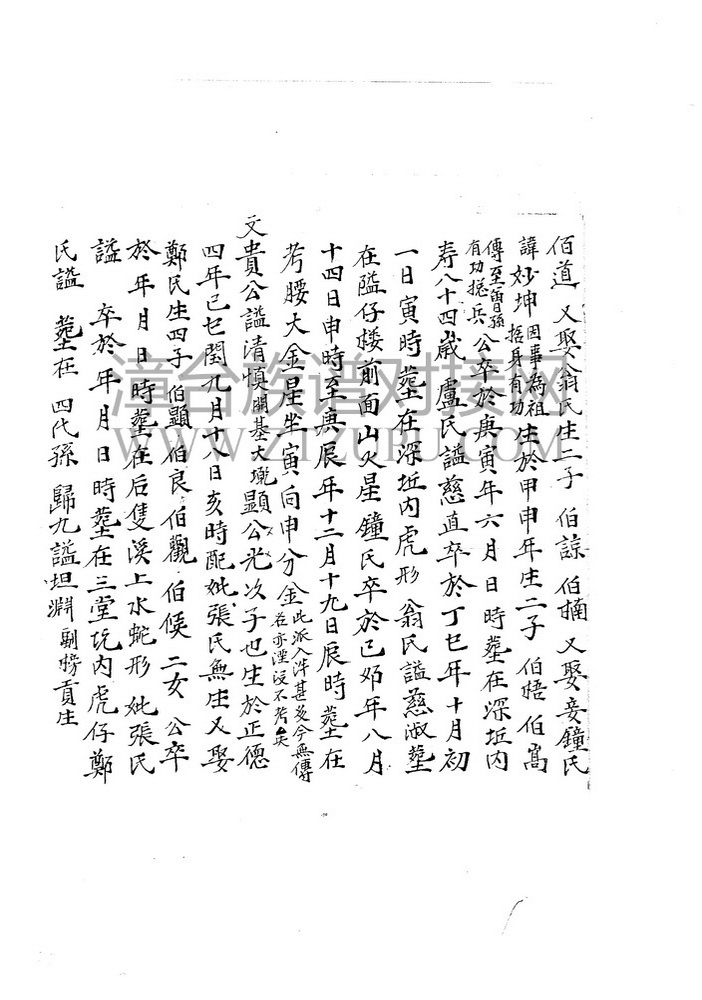 佰道 又娶翁氏生二子 伯諒 伯楠 又娶妾鐘氏
諱妙坤 因事為祖捂身有功 生於甲申年生二子 伯梧 伯嵩
傳至曾孫有功捴兵 公卒於庚寅年六月日時塟在深坵内
寿八十四歲 盧氏謚慈直卒於丁巳年十月初
一日寅時塟在深坵内虎形 翁氏謚慈淑塟
在隘仔楼前面山火星鐘氏卒於己夘年八月
十四日申時至庚辰年十二月十九日辰時塟在
考腰大金星坐寅向申分金 此派入泮甚多今無傳名亦湮没不考矣
文貴公謚清慎開基大壠顯公光次子也生於正德
四年己巳閏九月十八日亥時配妣張氏無生又娶
鄭氏生四子 伯顯 伯良 伯觀 伯候 二女 公卒
於年月日時塟在后隻溪上水蛇形 妣張氏
謚 卒於年月日時塟在三堂坑内虎仔鄭
氏謚 塟在 四代孫 歸九謚坦淵 副榜貢生
漳台族谱对接网
WWW.ZTZUPU.COM